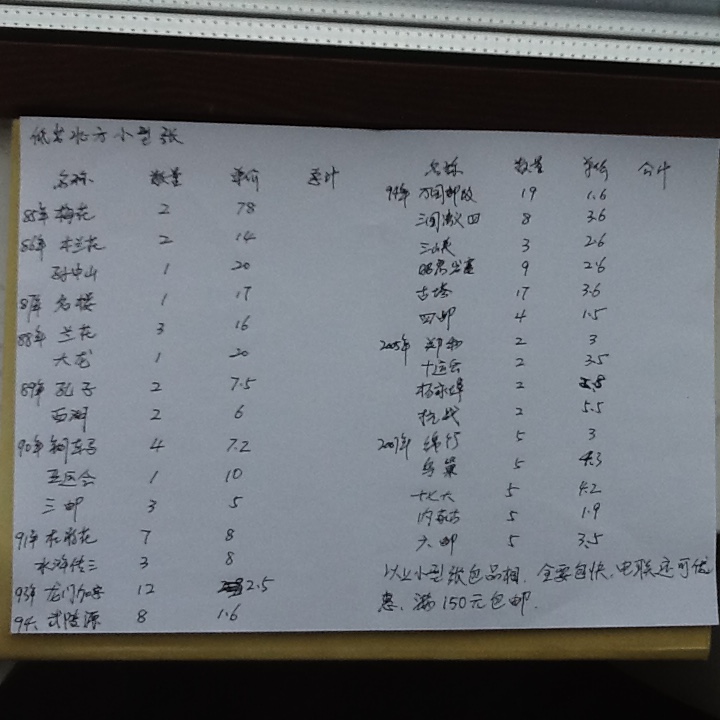 低出北方小型张
名称 数量 单价 总计
85年 梅花 2 78
86年 木兰花 2 14
孙中山 1 20
87年 名楼 1 17
88年 兰花 3 16
大龙 1 20
89年 孔子 2 7.5
西湖 2 6
90年 铜车马 4 7.2
亚运会 1 10
三邮 3 5
91年 杜鹃花 7 8
水浒传三 3 8
93年 龙门加字 12 2.5
94. 武陵源 8 1.6
名称 数量 单价 合计
94年 万国邮政 19 1.6
三国演义四 8 3.6
三峡 3 2.6
昭君出塞 9 2.6
古塔 17 3.6
四邮 4 1.5
2005年 郑和 2 3
十运会 2 3.5
杨家埠 2 5.8
抗战 2 5.5
2007年 绵竹 5 3
鸟巢 5 4.3
十七大 5 4.2
内蒙古 5 1.9
六邮 5 3.5
以上小型张包品相，全要包快，电联还可优
惠，满150元包邮.